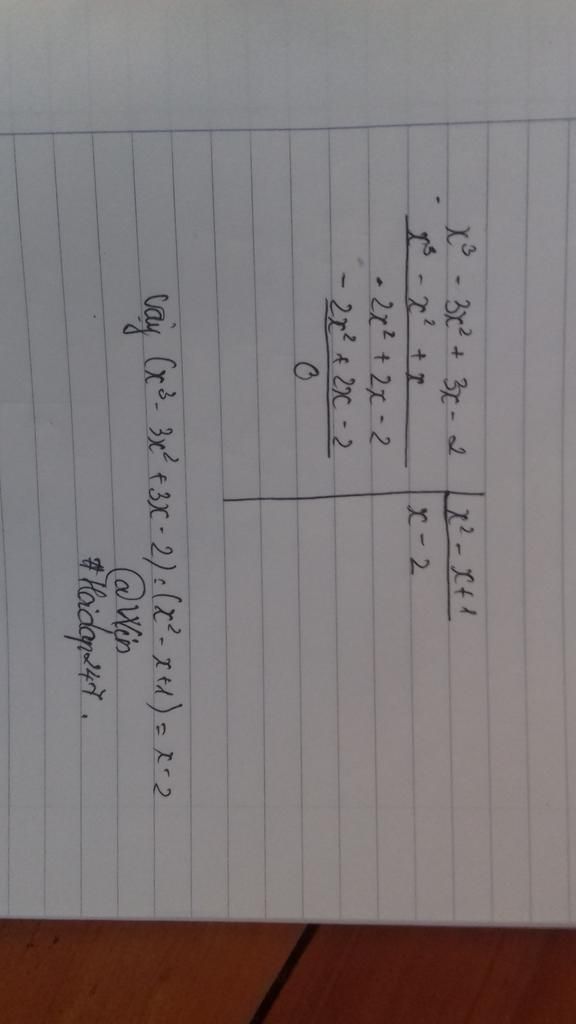 x³ - 3x² + 3x - 2 | x² - x + 1
- x³ - x² + x | x - 2
- 2x² + 2x - 2
- 2x² + 2x - 2
0
Vậy (x³ - 3x² + 3x - 2) : (x² - x + 1) = x - 2
@Win
#Hoidap247.